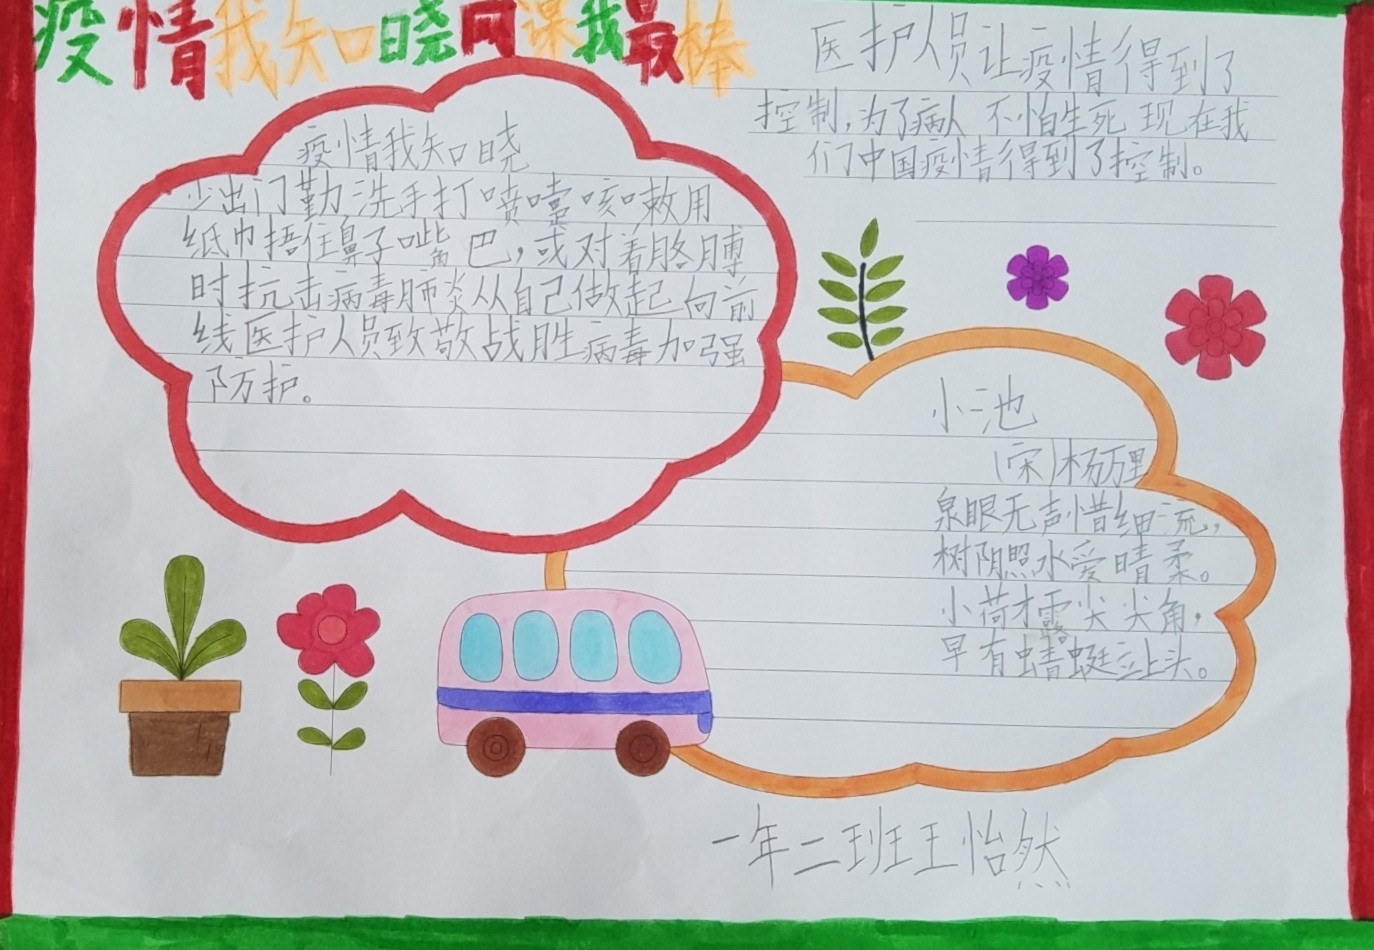 疫情我知晓网课我最棒
疫情我知晓
少出门勤洗手打喷嚏咳嗽用
纸巾捂住鼻子嘴巴,或对着胳膊
时抗击病毒肺炎从自己做起向前
线医护人员致敬战胜病毒加强
防护。
医护人员让疫情得到了
控制,为了病人不怕生死现在我
们中国疫情得到了控制。
小池
(宋)杨万里
泉眼无声惜细流,
树阴照水爱晴柔。
小荷才露尖尖角,
早有蜻蜓立上头。
一年二班王怡然